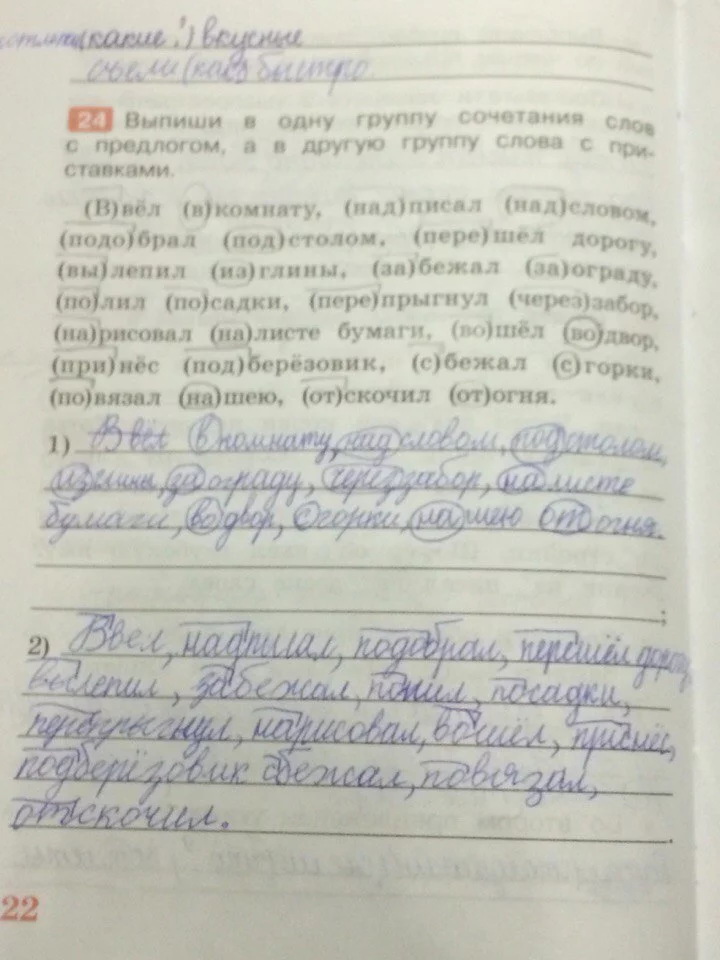 (какие?) вкусные
съели (как?) быстро
24 Выпиши в одну группу сочетания слов
с предлогом, а в другую группу слова с при-
ставками.
(В)вёл (в)комнату, (над)писал (над)словом,
(подо)брал (под)столом, (пере)шёл дорогу,
(вы)лепил (из)глины, (за)бежал (за)ограду,
(по)лил (по)садки, (пере)прыгнул (через)забор,
(на)рисовал (на)листе бумаги, (во)шёл (во)двор,
(при)нёс (под)берёзовик, (с)бежал (с)горки,
(по)вязал (на)шею, (от)скочил (от)огня.
1) Ввёл в комнату, над словом, под столом,
из глины, за ограду, через забор, на листе
бумаги, во двор, с горки, на шею от огня.
;
2) Ввел, надписал, подобрал, перешёл дорогу
вылепил, забежал, полил, посадки,
перепрыгнул, нарисовал, вошёл, принёс,
подберёзовик сбежал, повязал,
отскочил.
.
22